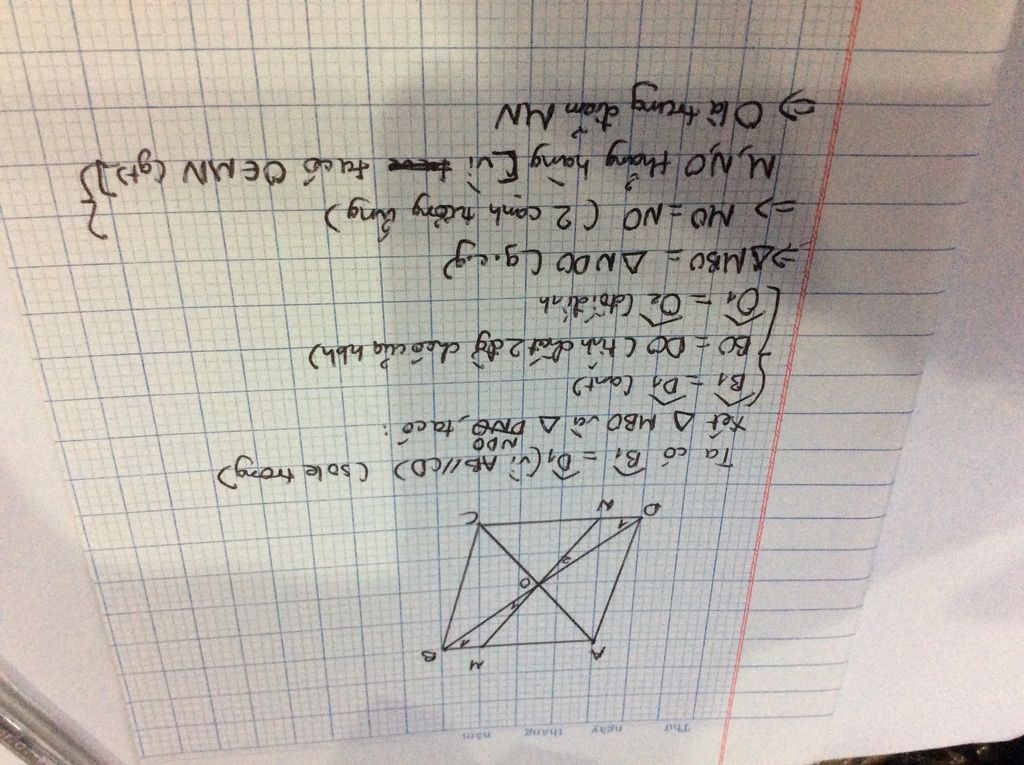 Thứ ngày tháng năm
A M B
1
1
O
2
1
D N C
Ta có B1 = D1 (vì AB//CD) (sole trong)
Xét Δ MBO và Δ DNO, ta có:
NDO
B1 = D1 (cmt)
BO = DO (tính chất 2 đg chéo của hbh)
O1 = O2 (đối đỉnh
⇒ΔMBO = ΔNDO (g.c.g)
=> MO = NO (2 cạnh tương ứng)
M,N,O thẳng hàng [vì ta có O∈MN (gt)]
⇒ O là trung điểm MN